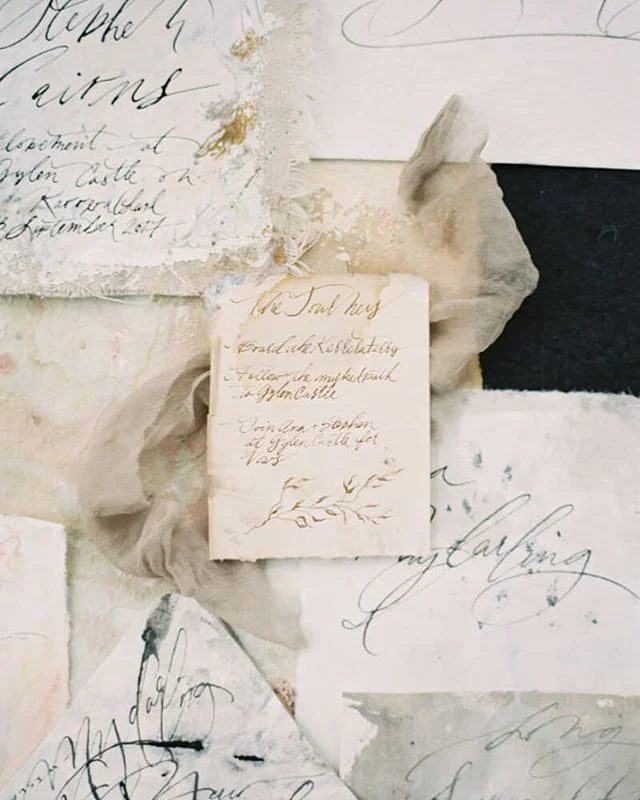 Stephen
Cairns
elopement at
Gylen Castle on
September 2017
The Journey
Board the Kerrera ferry
Follow the marked path
to Gylen Castle
Join Ana + Stephen
at Gylen Castle for
Vows
my darling
My darling
Your
Long